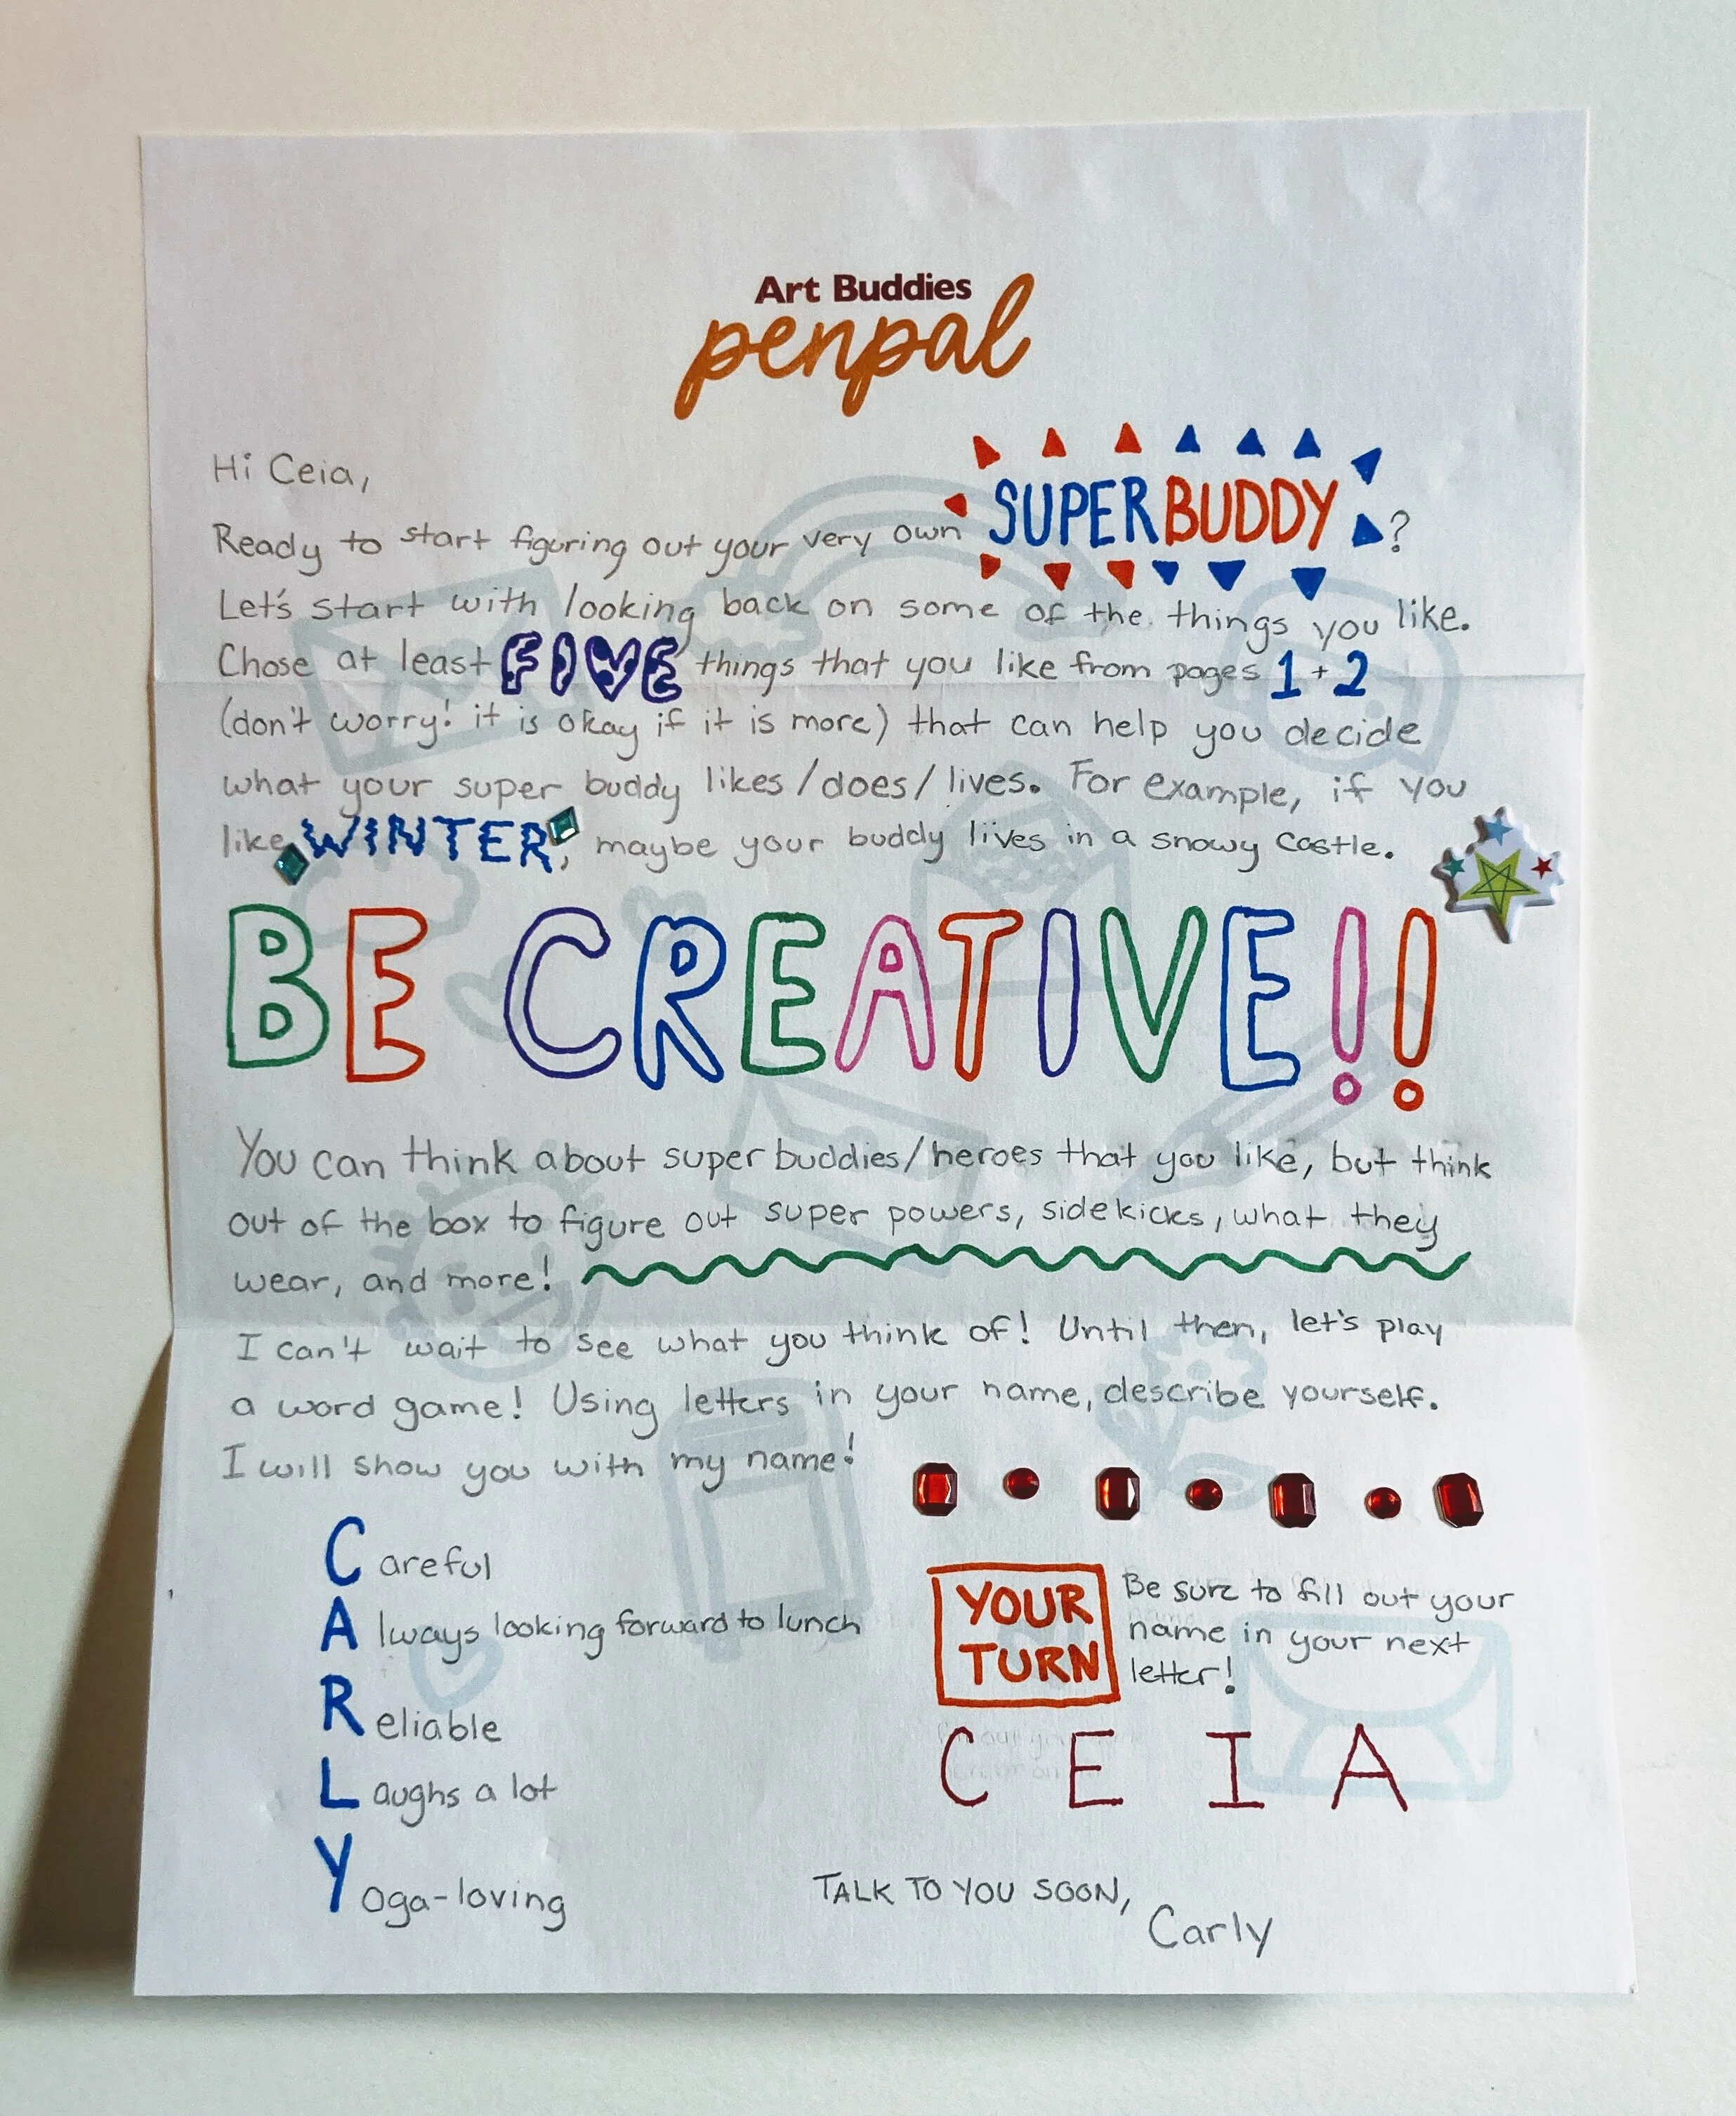 Art Buddies
penpal
Hi Ceia,
Ready to start figuring out your very own SUPERBUDDY?
Let's start with looking back on some of the things you like.
Chose at least FIVE things that you like from pages 1+2
(don't worry! it is okay if it is more) that can help you decide
what your super buddy likes/does/lives. For example, if you
like WINTER, maybe your buddy lives in a snowy castle.
BE CREATIVE!!
You can think about super buddies/heroes that you like, but think
out of the box to figure out super powers, sidekicks, what they
wear, and more!
I can't wait to see what you think of! Until then, let's play
a word game! Using letters in your name, describe yourself.
I will show you with my name!
Careful
Always looking forward to lunch
Reliable
Laughs a lot
Yoga-loving
YOUR
TURN
Be sure to fill out your
name in your next
letter!
C E I A
TALK TO YOU SOON,
Carly